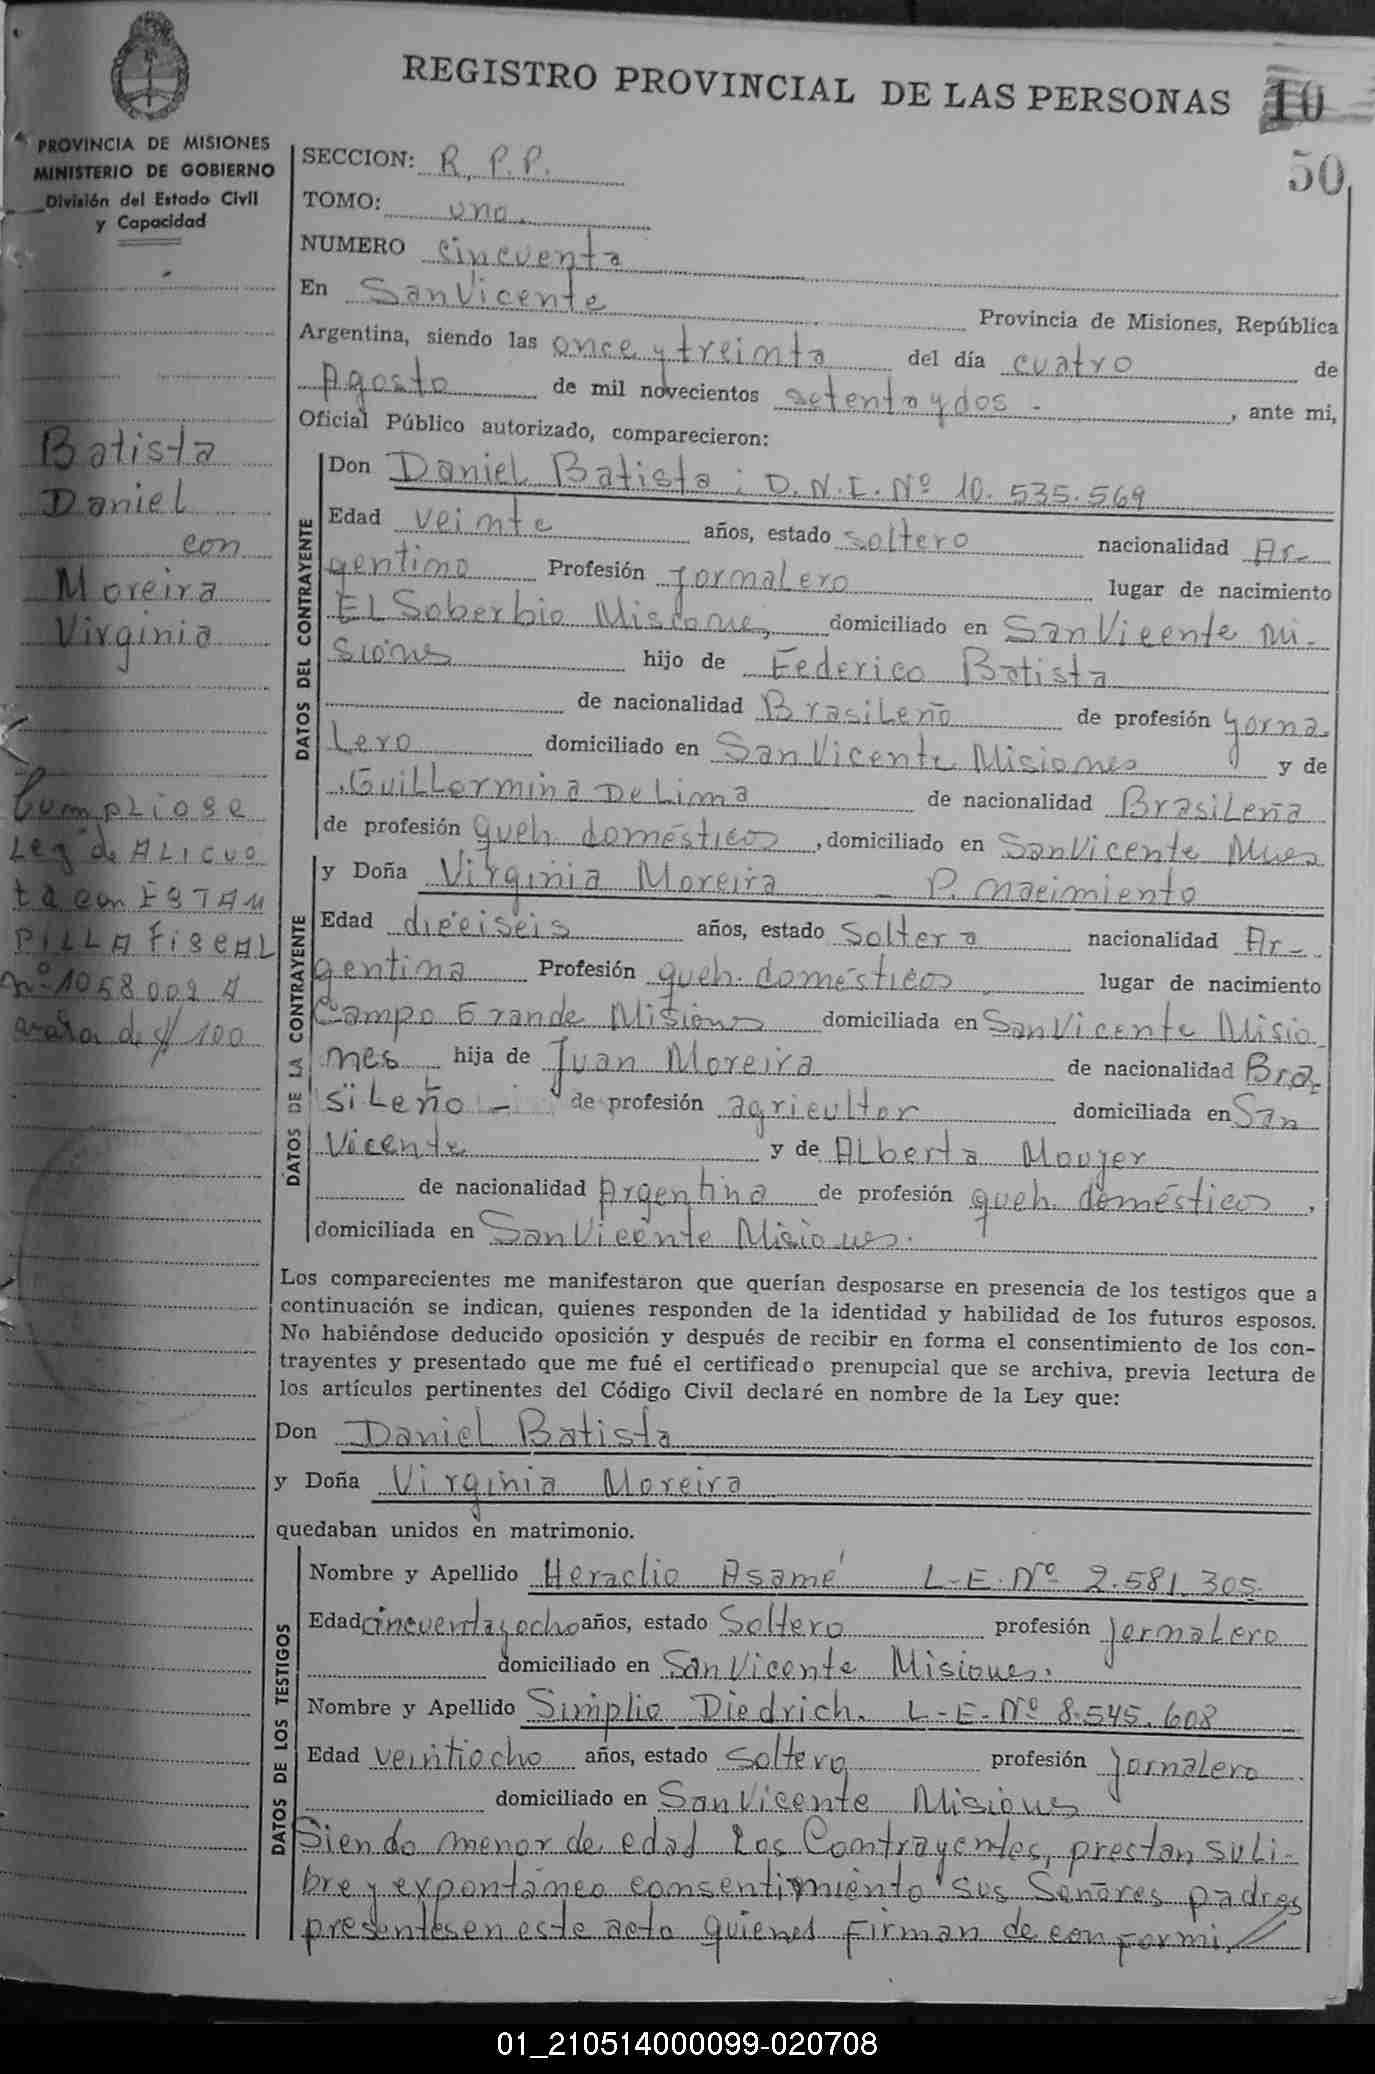 REGISTRO PROVINCIAL DE LAS PERSONAS 10
50
PROVINCIA DE MISIONES
MINISTERIO DE GOBIERNO
División del Estado Civil
y Capacidad
SECCION: R.P.P.
TOMO: uno.
NUMERO cincuenta
En San Vicente Provincia de Misiones, República
Argentina, siendo las once y treinta del día cuatro de
Agosto de mil novecientos setenta y dos - , ante mi,
Oficial Público autorizado, comparecieron:
Batista
Daniel
con
Moreira
Virginia
Cumpliose
Ley de ALICUO
ta con ESTAM
PILLA FISCAL
nº 1058002 A
de $ 100
DATOS DEL CONTRAYENTE
Don Daniel Batista; D.N.I. Nº 10.535.569
Edad veinte años, estado soltero nacionalidad Ar-
gentino Profesión Jornalero lugar de nacimiento
EL Soberbio Misiones, domiciliado en San Vicente Mi-
siones hijo de Federico Batista
de nacionalidad Brasileño de profesión Jorna
lero domiciliado en San Vicente Misiones y de
Guillermina De Lima de nacionalidad Brasileña
de profesión queh. domésticos , domiciliado en San Vicente Mnes
DATOS DE LA CONTRAYENTE
y Doña Virginia Moreira - P. nacimiento
Edad dieciseis años, estado Soltera nacionalidad Ar-
gentina Profesión queh. domésticos lugar de nacimiento
Campo Grande Misiones domiciliada en San Vicente Misio
nes hija de Juan Moreira de nacionalidad Bra-
sileño - de profesión agricultor domiciliada en San
Vicente y de Alberta Mouyer
de nacionalidad Argentina de profesión queh. domésticos ,
domiciliada en San Vicente Misiones.
Los comparecientes me manifestaron que querían desposarse en presencia de los testigos que a
continuación se indican, quienes responden de la identidad y habilidad de los futuros esposos.
No habiéndose deducido oposición y después de recibir en forma el consentimiento de los con-
trayentes y presentado que me fué el certificado prenupcial que se archiva, previa lectura de
los artículos pertinentes del Código Civil declaré en nombre de la Ley que:
Don Daniel Batista
y Doña Virginia Moreira
quedaban unidos en matrimonio.
DATOS DE LOS TESTIGOS
Nombre y Apellido Heraclio Asamé L-E. Nº 2.581.305
Edad cincuenta y ocho años, estado Soltero profesión Jornalero
domiciliado en San Vicente Misiones.
Nombre y Apellido Simplio Diedrich. L-E- Nº 8.545.608
Edad veintiocho años, estado soltero profesión Jornalero
domiciliado en San Vicente Misiones
Siendo menor de edad Los Contrayentes, prestan su li-
bre y expontáneo consentimiento sus Señores padres
presentes en este acto quienes firman de conformi
01_210514000099-020708